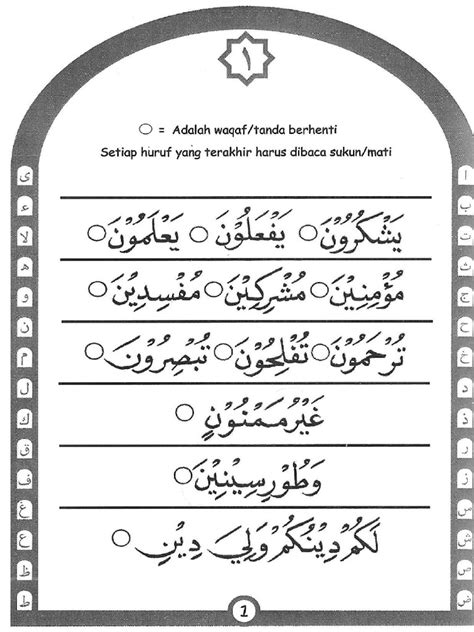 ١
○ = Adalah waqaf/tanda berhenti
Setiap huruf yang terakhir harus dibaca sukun/mati
يَشْكُرُوْنَ ○ يَفْعَلُوْنَ ○ يَعْلَمُوْنَ ○
مُؤْمِنِيْنَ ○ مُشْرِكِيْنَ ○ مُفْسِدِيْنَ ○
تُرْحَمُوْنَ ○ تُفْلِحُوْنَ ○ تُبْصِرُوْنَ ○
غَيْرُ مَمْنُوْنٍ ○
وَطُوْرِ سِيْنِيْنَ ○
لَكُمْ دِيْنُكُمْ وَلِيَ دِيْنِ ○
ا
ب
ت
ث
ج
ح
خ
د
ذ
ر
ز
س
ش
ص
ض
ط
ظ
ع
غ
ف
ق
ك
ل
م
ن
و
ه
لا
ء
ى
1